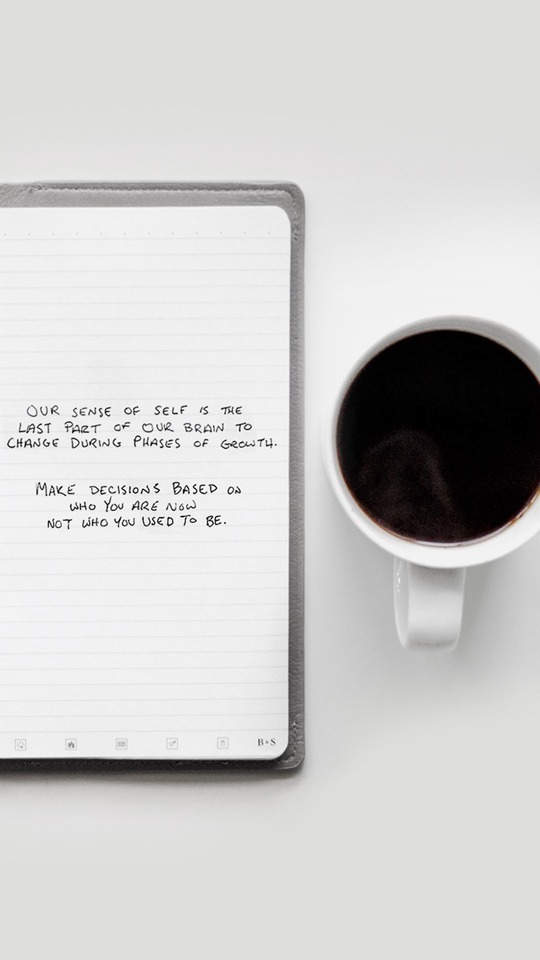 OUR SENSE OF SELF IS THE
LAST PART OF OUR BRAIN TO
CHANGE DURING PHASES OF GROWTH.
MAKE DECISIONS BASED ON
WHO YOU ARE NOW
NOT WHO YOU USED TO BE.
B+S